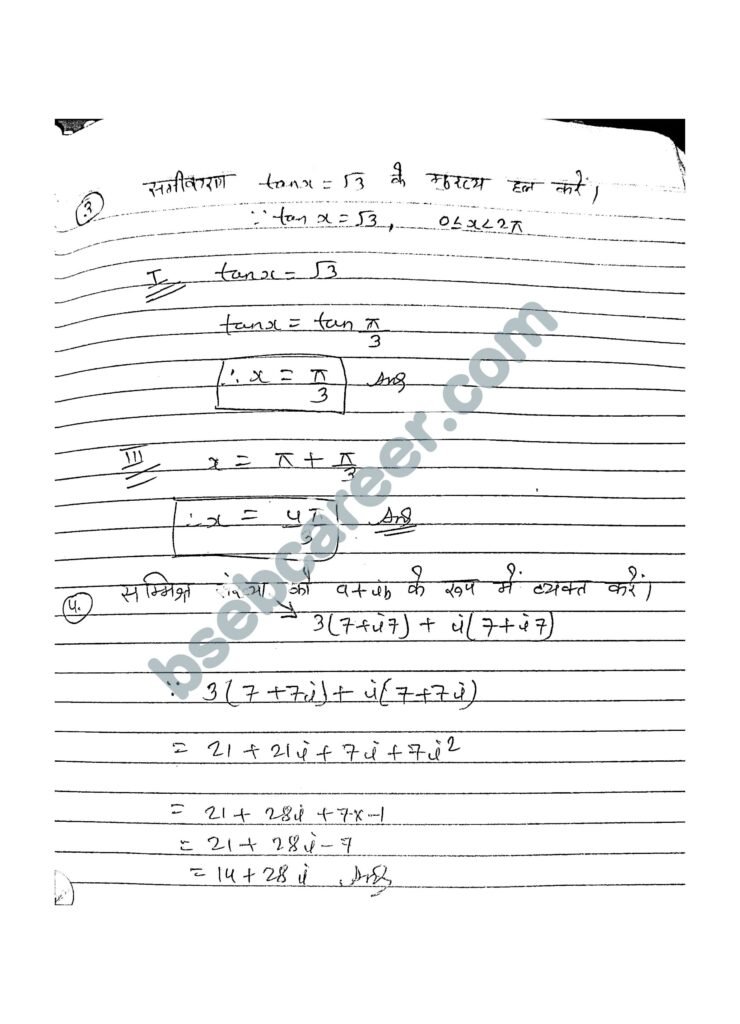 ③ समीकरण tanx = √3 के मुख्य हल करें।
∵ tan x = √3, 0≤x<2π
I tanx = √3
tanx = tan π/3
∴ x = π/3 Ans
III x = π + π/3
∴ x = 4π/3 Ans
4. सम्मिश्र संख्या को a+ib के रूप में व्यक्त करें।
→ 3(7+i7) + i(7+i7)
∵ 3(7+7i) + i(7+7i)
= 21 + 21i + 7i + 7i²
= 21 + 28i + 7x-1
= 21 + 28i - 7
= 14 + 28i Ans
bsebcareer.com